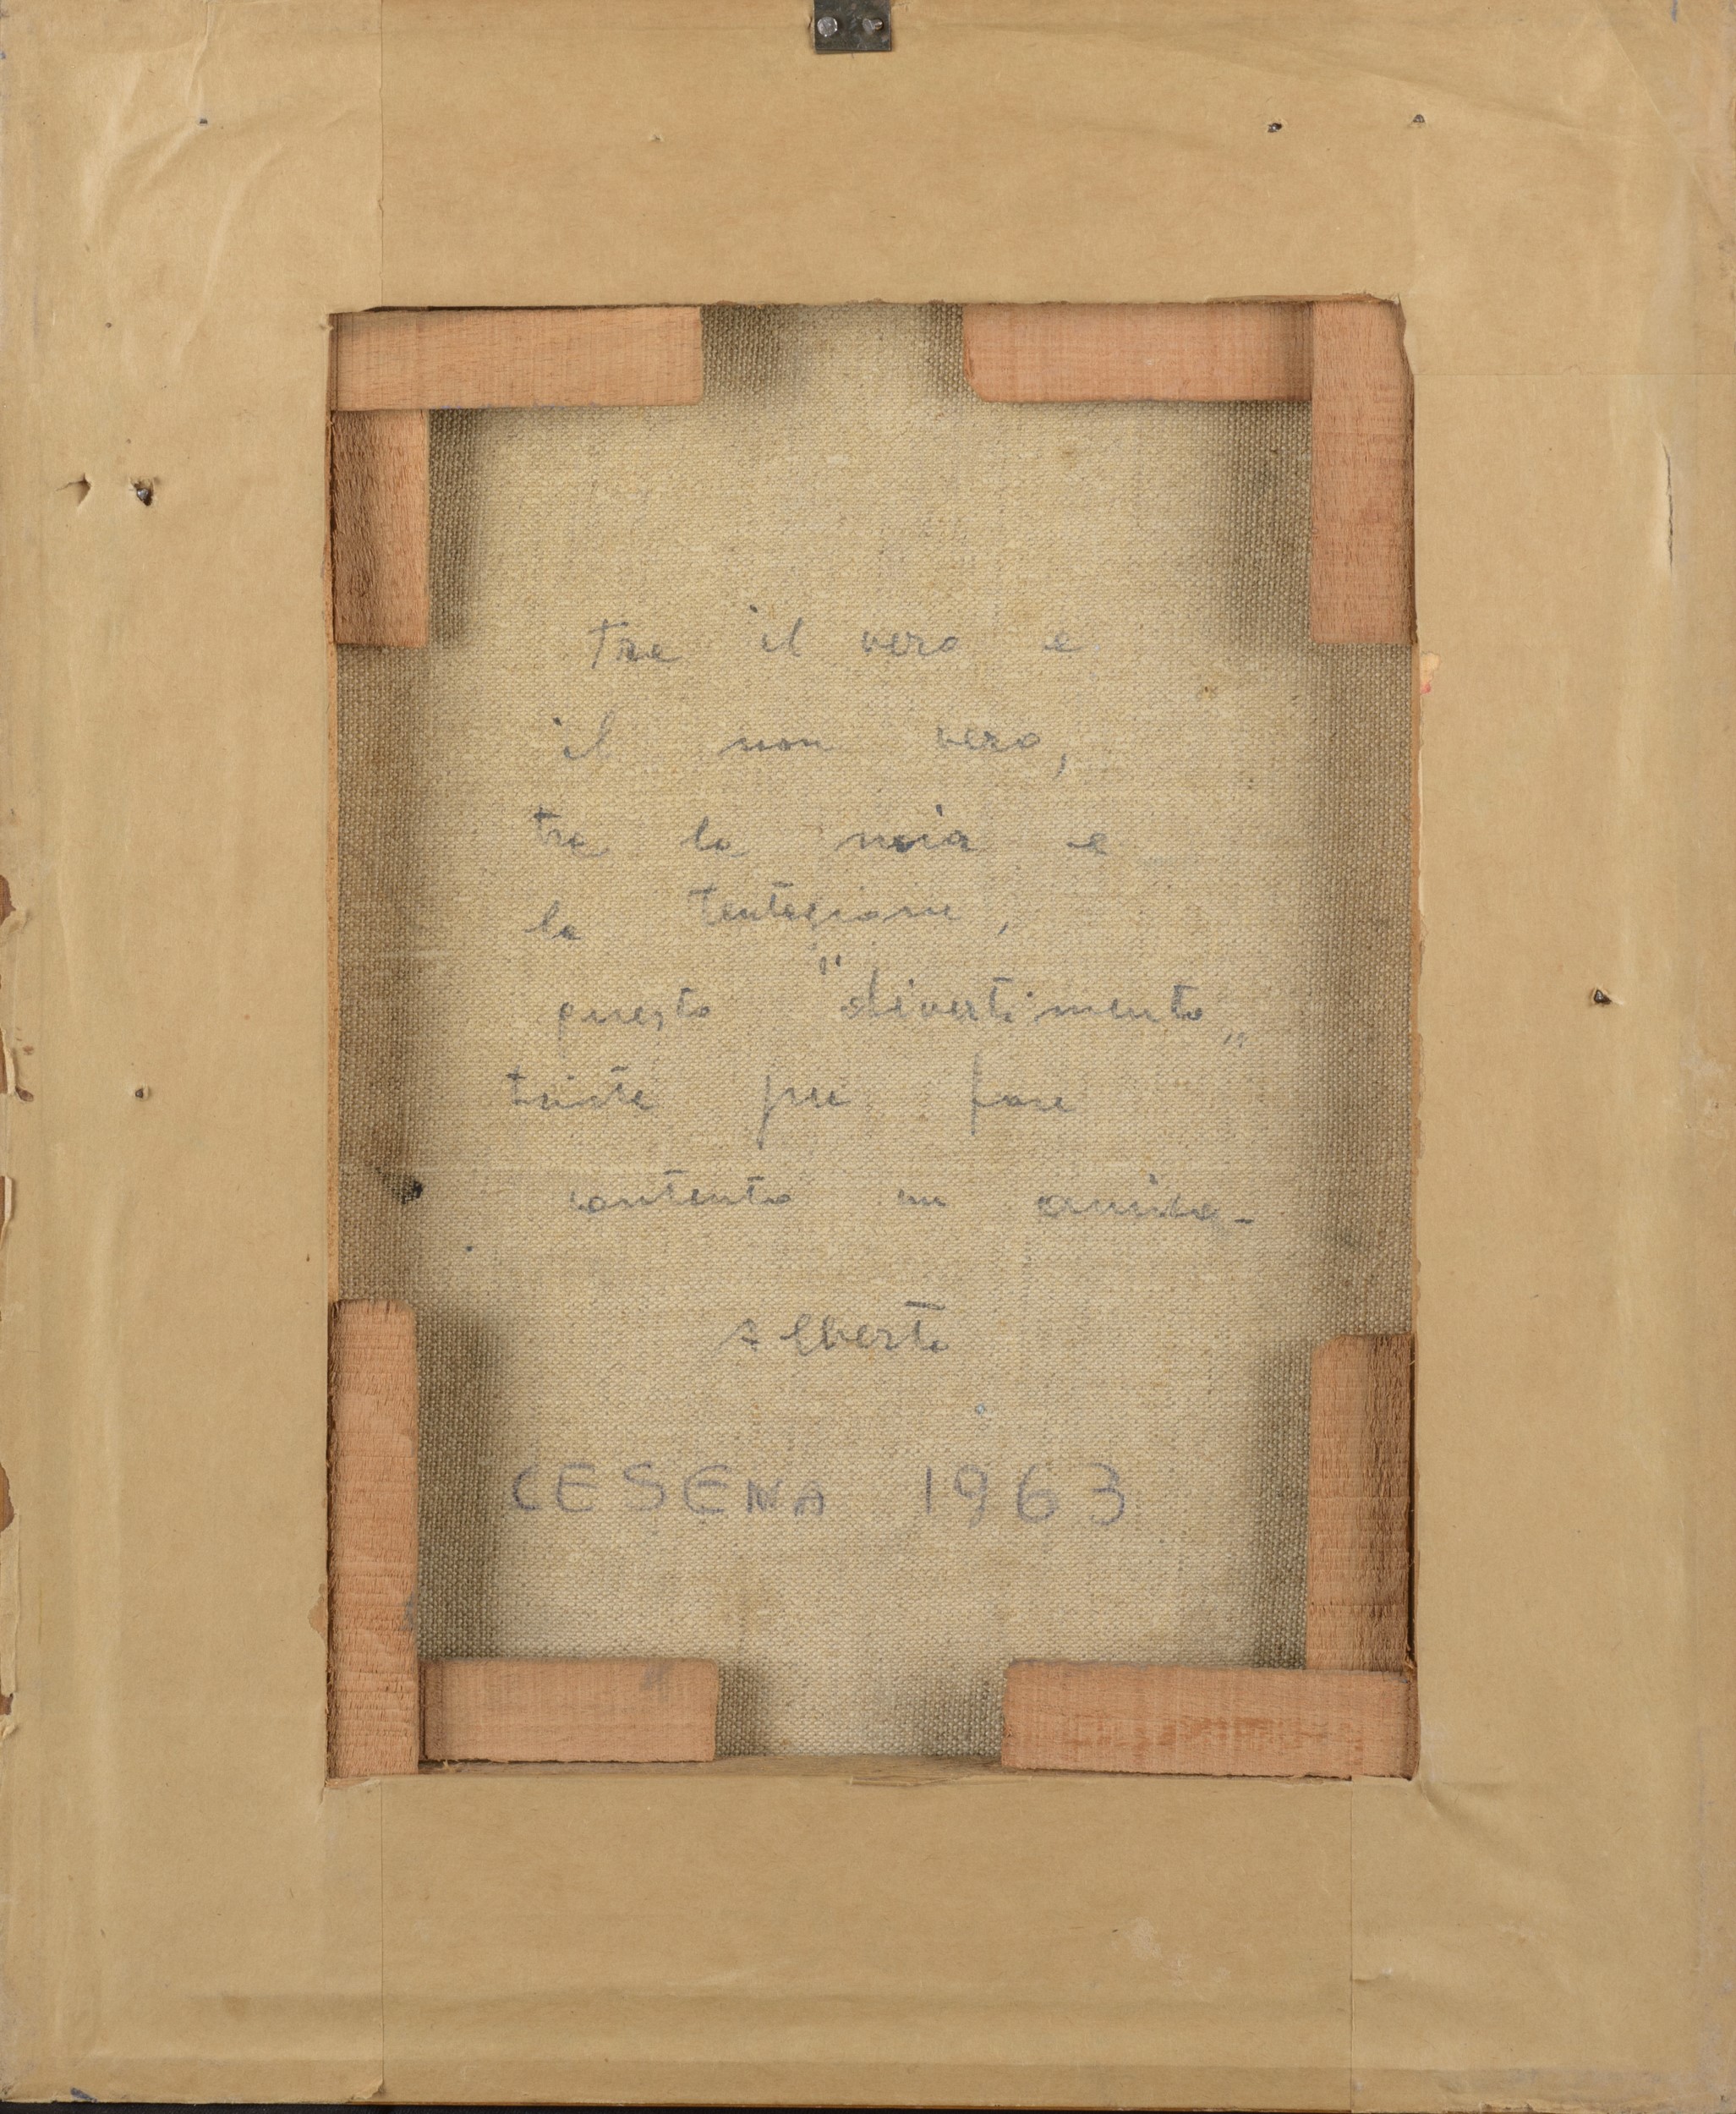 tra il vero e
il non vero,
tra la noia e
la tentazione,
questo "divertimento„
triste per fare
contento un amico-
Alberto
CESENA 1963